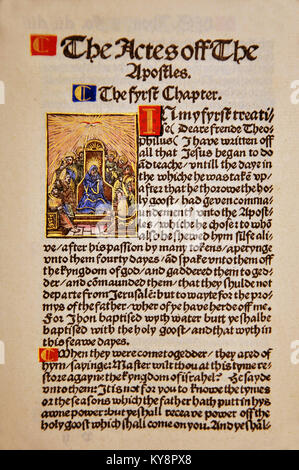 The Actes off The
Apostles.
The fyrst Chapter.
In my fyrst treati-
se (deare frende Theo-
philus) I have written off
all that Jesus began to do
ād teache/ vntill the daye in
the whiche he was takē vp/
after that he thorowe the ho-
ly goost/ had geven comma-
undementꝭ vnto the Apost-
les/ whiche he chose: to whō
also he shewed hym silfe ali-
ve/ after his passion by many tokens/ aperynge
vnto them fourty dayes/ ād spake vnto them off
the kyngdom of god/ and gaddered them to ged-
der/ and cōmaunded them/ that they shulde not
departe from Jerusalē: but to wayte for the pro-
mys of the father/ wher of ye have herde off me.
For Jhon baptised wyth water: but ye shalbe
baptised with the holy goost/ and that wyth in
this feawe dayes.
When they were come togedder/ they axed of
hym/ sayinge: Master wilt thou at this tyme re-
store agayne the kyngdom of israhel? He sayde
vnto them: It is not for you to knowe the tymes
or the seasons which the father hath putt in hys
awne power: but ye shall receave power off the
holy goost which shall come on you. And ye shal-
alamy
Image ID: KY8PX8
www.alamy.com